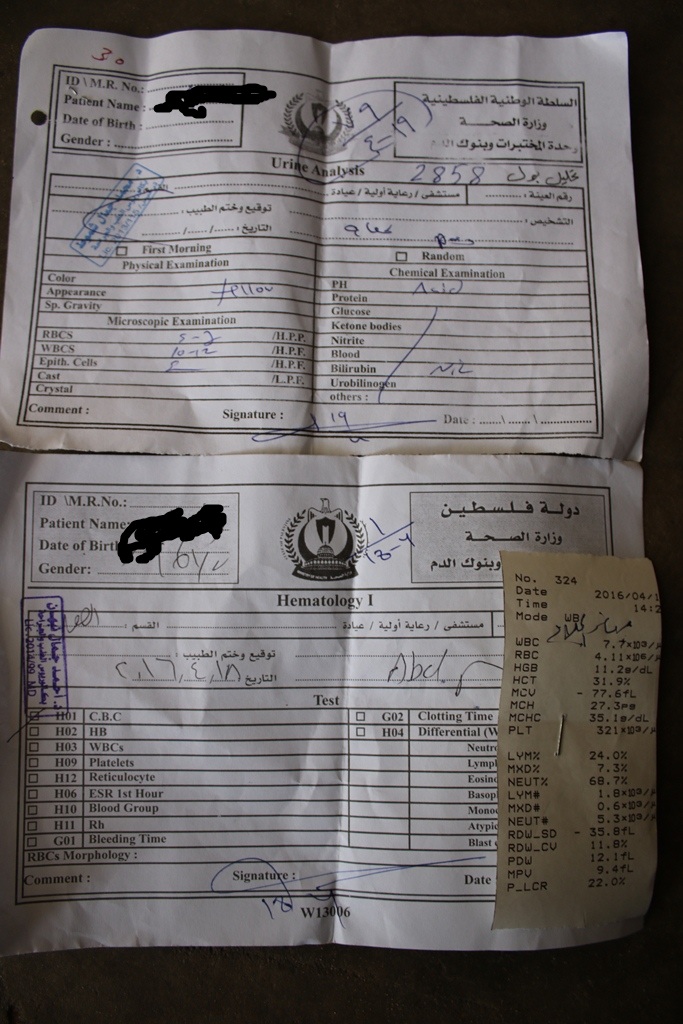 30
ID \ M.R. No.:
Patient Name :
Date of Birth :
Gender :
السلطة الوطنية الفلسطينية
وزارة الصحة
وحدة المختبرات وبنوك الدم
Urine Analysis
2858
رقم العينة :
مستشفى / رعاية أولية / عيادة
التشخيص :
توقيع وختم الطبيب :
التاريخ : ...../...../.....
First Morning
Random
Physical Examination
Chemical Examination
Color
Appearance
Sp. Gravity
Yellow
PH
Acid
Protein
Glucose
Ketone bodies
Nitrite
Blood
Bilirubin
Nil
Urobilinogen
others :
Microscopic Examination
RBCS
/H.P.P.
WBCS
10-12
/H.P.F.
Epith. Cells
/H.P.F.
Cast
/L.P.F.
Crystal
Comment :
Signature :
19
Date : ......\......\......
ID \M.R.No.:
Patient Name
Date of Birth
Gender:
دولة فلسطين
وزارة الصحة
وبنوك الدم
Hematology I
مستشفى / رعاية أولية / عيادة
القسم :
توقيع وختم الطبيب :
التاريخ
Abd.
Test
H01 C.B.C
H02 HB
H03 WBCs
H09 Platelets
H12 Reticulocyte
H06 ESR 1st Hour
H10 Blood Group
H11 Rh
G01 Bleeding Time
G02 Clotting Time
H04 Differential (W
Neutro
Lymp
Eosino
Basop
Mono
Atypic
Blast c
RBCs Morphology :
Comment :
Signature :
Date
W13006
No. 324
Date 2016/04/1
Time 14:2
Mode WB
WBC 7.7×10³/µ
RBC 4.11×10⁶/µ
HGB 11.2g/dL
HCT 31.9%
MCV - 77.6fL
MCH 27.3pg
MCHC 35.1g/dL
PLT 321×10³/µ
LYM% 24.0%
MXD% 7.3%
NEUT% 68.7%
LYM# 1.8×10³/µ
MXD# 0.6×10³/µ
NEUT# 5.3×10³/µ
RDW_SD - 35.8fL
RDW_CV 11.8%
PDW 12.1fL
MPV 9.4fL
P_LCR 22.0%